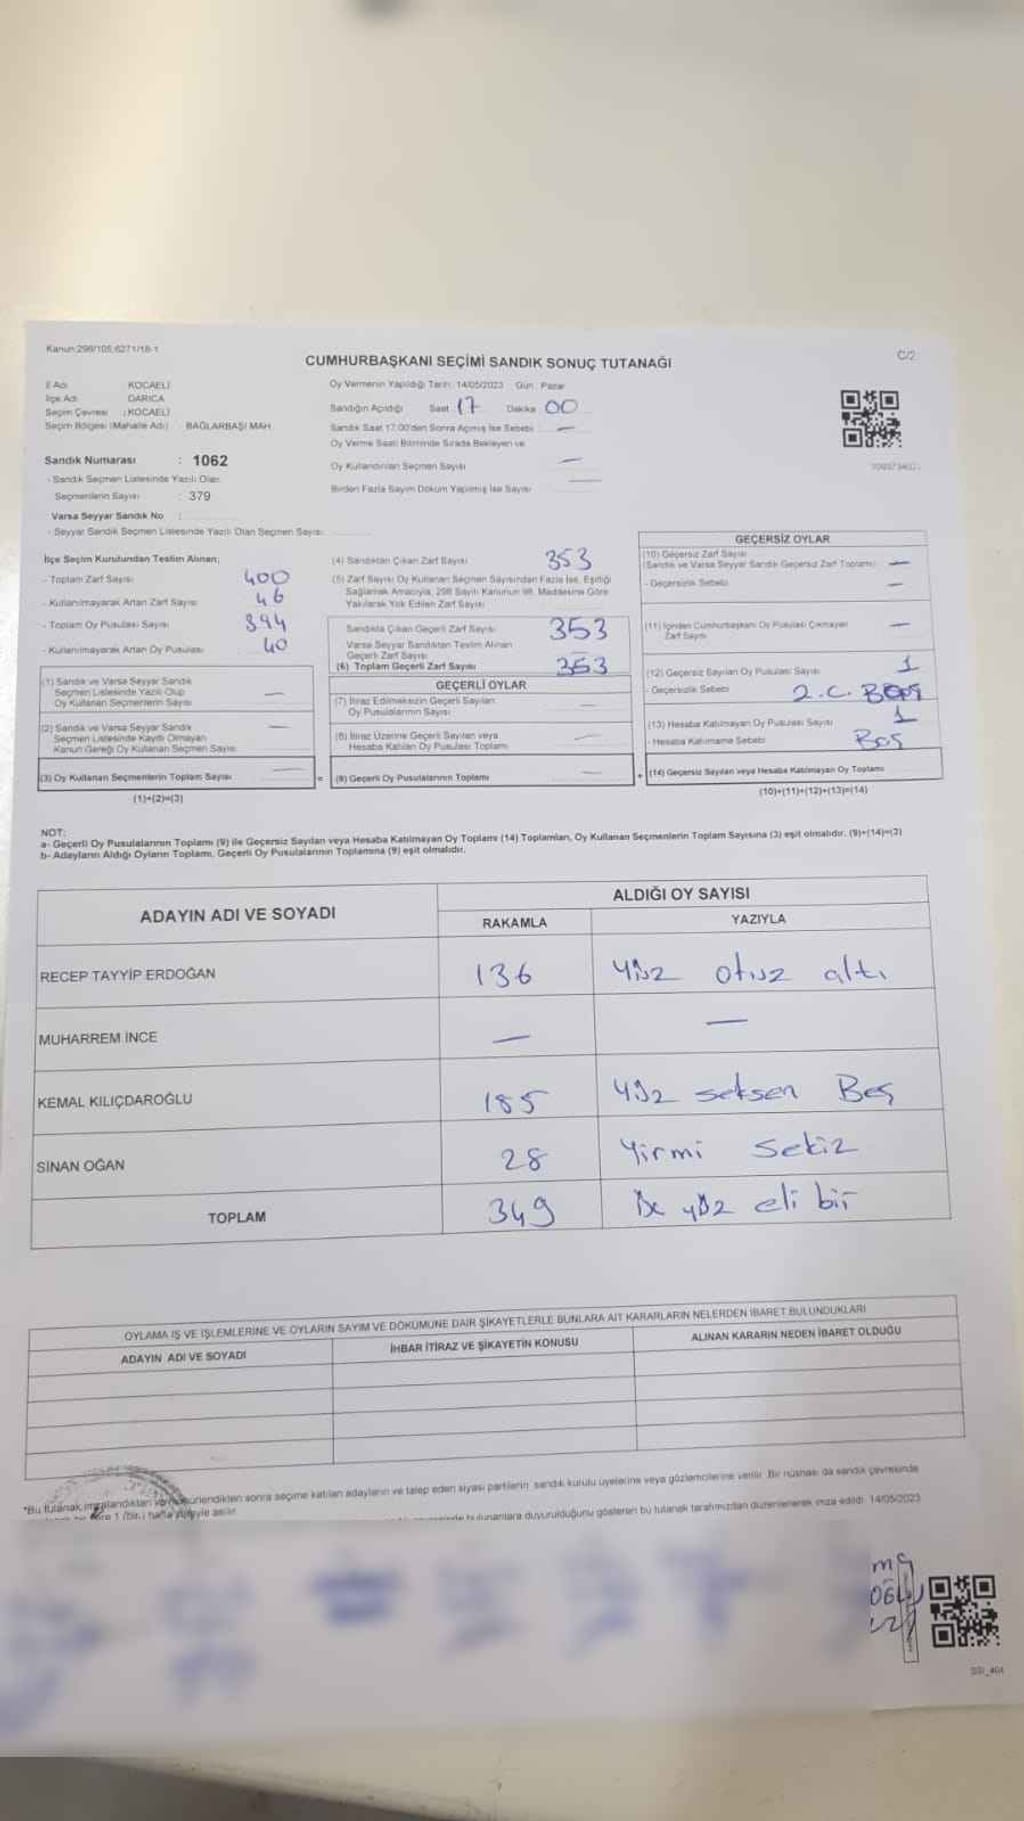 Kanun:298/105;6271/18-1
C/2
CUMHURBAŞKANI SEÇİMİ SANDIK SONUÇ TUTANAĞI
İl Adı KOCAELİ
İlçe Adı DARICA
Seçim Çevresi : KOCAELİ
Seçim Bölgesi (Mahalle Adı) BAĞLARBAŞI MAH
Sandık Numarası : 1062
- Sandık Seçmen Listesinde Yazılı Olan
Seçmenlerin Sayısı : 379
Varsa Seyyar Sandık No :
- Seyyar Sandık Seçmen Listesinde Yazılı Olan Seçmen Sayısı
Oy Vermenin Yapıldığı Tarih: 14/05/2023 Gün: Pazar
Sandığın Açıldığı Saat 17 Dakika 00
Sandık Saat 17.00'den Sonra Açımış İse Sebebi —
Oy Verme Saati Bitiminde Sırada Bekleyen ve
Oy Kullandırılan Seçmen Sayısı —
Birden Fazla Sayım Döküm Yapılmış İse Sayısı —
İlçe Seçim Kurulundan Teslim Alınan;
- Toplam Zarf Sayısı 400
- Kullanılmayarak Artan Zarf Sayısı 46
- Toplam Oy Pusulası Sayısı 394
- Kullanılmayarak Artan Oy Pusulası 40
(1) Sandık ve Varsa Seyyar Sandık
Seçmen Listesinde Yazılı Olup
Oy Kullanan Seçmenlerin Sayısı —
(2) Sandık ve Varsa Seyyar Sandık
Seçmen Listesinde Kayıtlı Olmayan
Kanun Gereği Oy Kullanan Seçmen Sayısı —
(3) Oy Kullanan Seçmenlerin Toplam Sayısı —
(1)+(2)=(3)
(4) Sandıktan Çıkan Zarf Sayısı 353
(5) Zarf Sayısı Oy Kullanan Seçmen Sayısından Fazla İse, Eşitliği
Sağlamak Amacıyla, 298 Sayılı Kanunun 98. Maddesine Göre
Yakılarak Yok Edilen Zarf Sayısı
Sandıkta Çıkan Geçerli Zarf Sayısı 353
Varsa Seyyar Sandıktan Teslim Alınan
Geçerli Zarf Sayısı
(6) Toplam Geçerli Zarf Sayısı 353
GEÇERLİ OYLAR
(7) İtiraz Edilmeksizin Geçerli Sayılan
Oy Pusulalarının Sayısı —
(8) İtiraz Üzerine Geçerli Sayılan veya
Hesaba Katılan Oy Pusulası Toplamı —
(9) Geçerli Oy Pusulalarının Toplamı —
GEÇERSİZ OYLAR
(10) Geçersiz Zarf Sayısı
(Sandık ve Varsa Seyyar Sandık Geçersiz Zarf Toplamı) —
- Geçersizlik Sebebi —
(11) İçinden Cumhurbaşkanı Oy Pusulası Çıkmayan
Zarf Sayısı —
(12) Geçersiz Sayılan Oy Pusulası Sayısı 1
- Geçersizlik Sebebi 2.C.
(13) Hesaba Katılmayan Oy Pusulası Sayısı 1
- Hesaba Katılmama Sebebi Boş
(14) Geçersiz Sayılan veya Hesaba Katılmayan Oy Toplamı
(10)+(11)+(12)+(13)=(14)
NOT:
a- Geçerli Oy Pusulalarının Toplamı (9) ile Geçersiz Sayılan veya Hesaba Katılmayan Oy Toplamı (14) Toplamları, Oy Kullanan Seçmenlerin Toplam Sayısına (3) eşit olmalıdır. (9)+(14)=(3)
b- Adayların Aldığı Oyların Toplamı, Geçerli Oy Pusulalarının Toplamına (9) eşit olmalıdır.
ADAYIN ADI VE SOYADI
ALDIĞI OY SAYISI
RAKAMLA YAZIYLA
RECEP TAYYİP ERDOĞAN 136 yüz otuz altı
MUHARREM İNCE — —
KEMAL KILIÇDAROĞLU 185 yüz seksen Beş
SİNAN OĞAN 28 Yirmi Sekiz
TOPLAM 349 üç yüz eli bir
OYLAMA İŞ VE İŞLEMLERİNE VE OYLARIN SAYIM VE DÖKÜMÜNE DAİR ŞİKAYETLERLE BUNLARA AİT KARARLARIN NELERDEN İBARET BULUNDUKLARI
ADAYIN ADI VE SOYADI İHBAR İTİRAZ VE ŞİKAYETİN KONUSU ALINAN KARARIN NEDEN İBARET OLDUĞU
*Bu tutanak, imzalandıktan ve mühürlendikten sonra seçime katılan adayların ve talep eden siyasi partilerin sandık kurulu üyelerine veya gözlemcilerine verilir. Bir nüshası da sandık çevresinde
1 (bir) hafta süreyle asılır. bulunanlara duyurulduğunu gösteren bu tutanak tarafımızdan düzenlenerek imza edildi. 14/05/2023